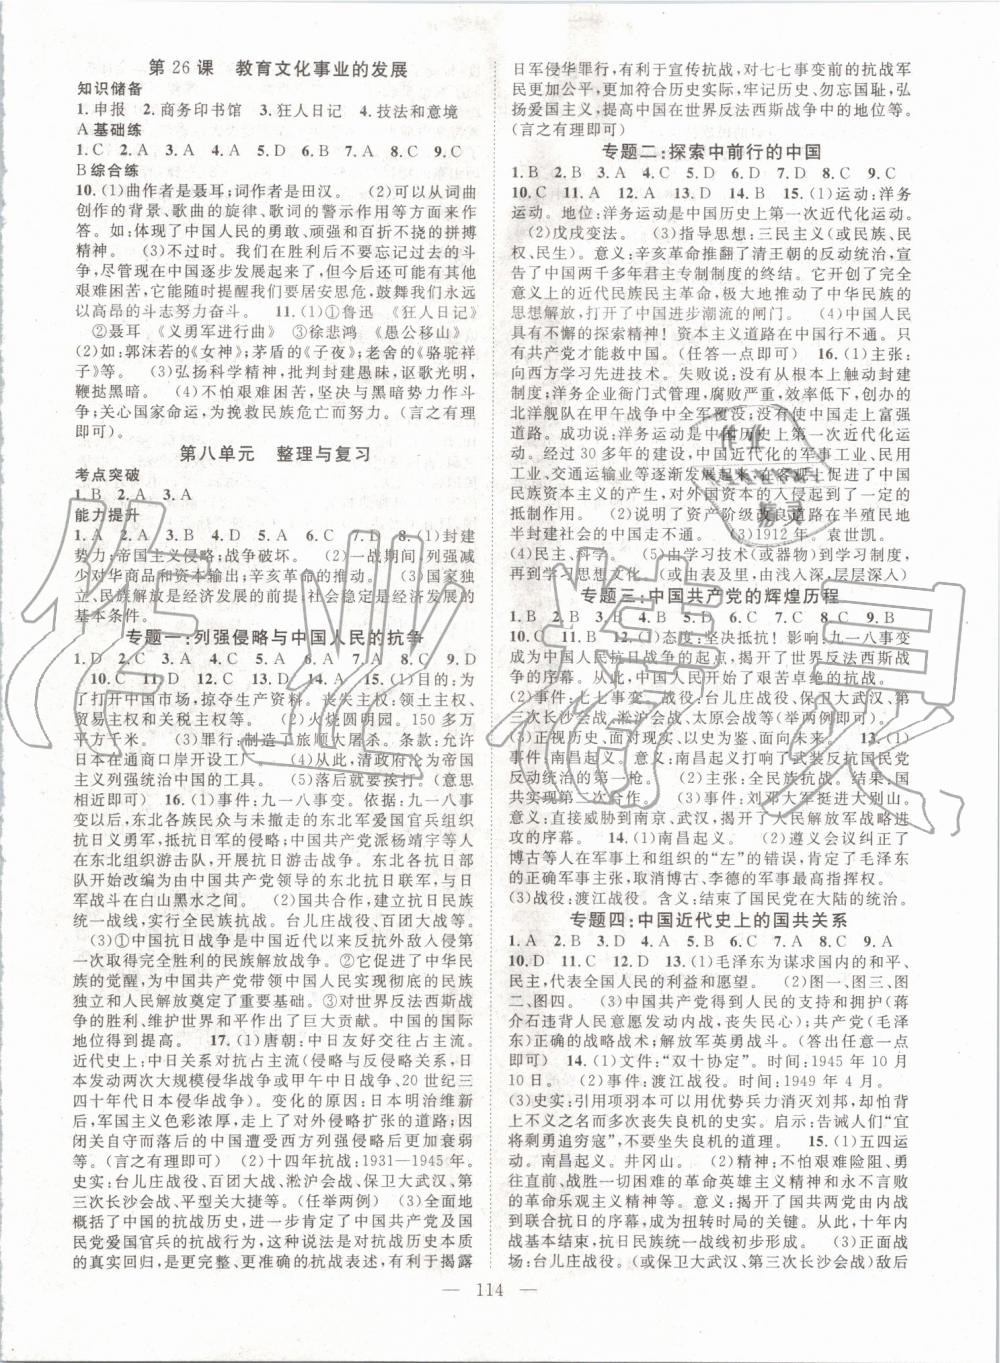 第26课 教育文化事业的发展
知识储备
1.申报 2.商务印书馆 3.狂人日记 4.技法和意境
A 基础练
1.C 2.A 3.A 4.A 5.D 6.B 7.A 8.C 9.C
B 综合练
10.(1)曲作者是聂耳;词作者是田汉。 (2)可以从词曲
创作的背景、歌曲的旋律、歌词的警示作用等方面来作
答。如:体现了中国人民的勇敢、顽强和百折不挠的拼搏
精神。 (3)不过时。我们在胜利后不要忘记过去的斗
争,尽管现在中国逐步发展起来,但我们仍然有其他
艰难困苦,它能随时提醒我们要居安思危,鼓舞我们永远
以高昂的斗志努力奋斗。 11.(1)①鲁迅 《狂人日记》
②聂耳 《义勇军进行曲》 ③徐悲鸿 《愚公移山》
(2)如:郭沫若的《女神》;茅盾的《子夜》;老舍的《骆驼祥
子》等。 (3)弘扬科学精神,批判封建愚昧,讴歌光明,
鞭挞黑暗。 (4)不怕艰难困苦,坚决与黑暗势力作斗
争;关心国家命运,为挽救民族危亡而努力。(言之有理
即可)。
第八单元 整理与复习
考点突破
1.B 2.A 3.A
能力提升
1.A 2.A 3.D 4.C 5.A 6.C 7.D 8.(1)封建
势力;帝国主义侵略;战争破坏。 (2)一战期间,列强减
少对华商品和资本输出;辛亥革命的推动。 (3)国家独
立、民族解放是经济发展的前提,社会稳定是经济发展的
基本条件。
专题一:列强侵略与中国人民的抗争
1.D 2.C 3.A 4.C 5.A 6.A 7.A 8.C 9.D
10.C 11.D 12.D 13.A 14.A 15.(1)目的:为
了打开中国市场,掠夺生产资料。丧失主权:领土主权、
贸易主权和关税主权等。 (2)火烧圆明园。150多万
平方千米。 (3)罪行:制造了旅顺大屠杀。条款:允许
日本在通商口岸开设工厂。 (4)从此,清政府沦为帝国
主义列强统治中国的工具。 (5)落后就要挨打。(意思
相近即可) 16.(1)事件:九一八事变。依据:九一八事
变以后,东北各族民众与未撤走的东北军爱国官兵组织
抗日义勇军,抵抗日军的侵略;中国共产党派杨靖宇等人
在东北组织游击队,开展抗日游击战争。东北各抗日部
队开始改编为由中国共产党领导的东北抗日联军,与日
军战斗在白山黑水之间。 (2)国共合作,建立抗日民族
统一战线,实行全民族抗战。台儿庄战役、百团大战等。
(3)①中国抗日战争是中国近代以来反抗外敌入侵第一
次取得完全胜利的民族解放战争。②它促进了中华民族
的觉醒,为中国共产党带领中国人民实现彻底的民族
独立和人民解放奠定了重要基础。③对世界反法西斯战
争的胜利、维护世界和平作出了巨大贡献。中国的国际
地位得到提高。 17.(1)唐朝:中日友好交往占主流。
近代史上:中日关系对抗占主流(侵略与反侵略关系),
日本发动两次大规模侵华战争或甲午中日战争、20世纪三
四十年代日本侵华战争)。变化的原因:日本明治维新
后,军国主义色彩浓厚,走上了对外侵略扩张的道路;因
闭关自守而落后的中国遭受西方列强侵略后更加衰弱
等。(言之有理即可) (2)十四年抗战:1931—1945年。
史实:台儿庄战役、百团大战、淞沪会战、保卫大武汉、第
三次长沙会战、平型关大捷等。(任举两例) (3)全面地
概括了中国的抗战历史,进一步肯定了中国共产党及国
民党爱国官兵的抗战行为,这种说法是对抗战历史本质
的真实回归,是更完整、更准确的抗战表述,有利于揭露
日军侵华罪行,有利于宣传抗战,对七七事变前的抗战军
民更加公平,更加符合历史实际,牢记历史、勿忘国耻,弘
扬爱国主义,提高中国在世界反法西斯战争中的地位等。
(言之有理即可)
专题二:探索中前行的中国
1.B 2.B 3.A 4.C 5.D 6.D 7.D 8.C 9.C
10.C 11.A 12.A 13.D 14.B 15.(1)运动:洋务
运动。地位:洋务运动是中国历史上第一次近代化运动。
(2)戊戌变法。 (3)指导思想:三民主义(或民族、民
权、民生)。意义:辛亥革命推翻了清王朝的反动统治,宣
告了中国两千多年君主专制制度的终结。它开创了完全
意义上的近代民族民主革命,极大地推动了中华民族的
思想解放,打开了中国进步潮流的闸门。 (4)中国人民
具有不懈的探索精神!资本主义道路在中国行不通。只
有共产党才能救中国。(任答一点即可) 16.(1)主张:
向西方学习先进技术。失败说:没有从根本上触动封建
制度;洋务企业衙门式管理,腐败严重,效率低下,创办的
北洋舰队在甲午战争中全军覆没;没有使中国走上富强
道路。成功说:洋务运动是中国近代化的第一次尝试;
经过30多年的建设,中国近代化的军事工业、民用工
业、交通运输业等逐渐发展起来;在客观上促进了中国
民族资本主义的产生,对外国资本的入侵起到了一定的
抵制作用。 (2)说明了资产阶级改良道路在半殖民地
半封建社会的中国走不通。 (3)1912年。袁世凯。
(4)民主、科学。 (5)由学习技术(或器物)到学习制度,
再到学习思想文化。(或由表及里,由浅入深;层层深入)
专题三:中国共产党的辉煌历程
1.B 2.A 3.C 4.C 5.D 6.B 7.C 8.A 9.B
10.C 11.B 12.(1)态度:坚决抵抗!影响:九一八事变
成为中国人民抗日战争的起点,揭开了世界反法西斯战
争的序幕。从此,中国人民开始了艰苦卓绝的抗战。
(2)事件:七七事变。战役:台儿庄战役、保卫大武汉、第
三次长沙会战、淞沪会战、太原会战等(举两例即可)。
(3)正视历史、面对现实、以史为鉴、面向未来。 13.(1)
事件:南昌起义。意义:南昌起义打响了武装反抗国民党
反动统治的第一枪。 (2)主张:全民族抗战。结果:国
共实现第二次合作。 (3)事件:刘邓大军挺进大别山。
意义:直接威胁到南京、武汉,揭开了人民解放军战略进
攻的序幕。 14.(1)南昌起义。 (2)遵义会议纠正了
博古等人在军事上和组织的“左”的错误,肯定了毛泽东
的正确军事主张,取消了博古、李德的军事最高指挥权。
(3)战役:渡江战役。含义:结束了国民党在大陆的统治。
专题四:中国近代史上的国共关系
1.A 2.B 3.D 4.A 5.C 6.A 7.A 8.C 9.A
10.D 11.D 12.C 13.(1)毛泽东为谋求国内的和平、
民主,代表全国人民的利益和愿望。 (2)图一、图三、图
二、图四。 (3)中国共产党得到人民的支持和拥护(蒋
介石违背人民意愿发动内战,丧失民心);共产党(毛泽
东)正确的战略战术;解放军英勇战斗。(答出任意一点
即可) 14.(1)文件:“双十协定”。时间:1945年10月
10日。 (2)事件:渡江战役。时间:1949年4月。
(3)史实:引用项羽本可以用优势兵力消灭刘邦,却怕背
上不义之名而多次丧失良机的史实。启示:告诫人们“宜
将剩勇追穷寇”,不要坐失良机的道理。 15.(1)五四运
动。南昌起义。井冈山。 (2)精神:不怕艰难险阻、勇
往直前、敢于战斗的革命英雄主义精神和永不言败
的革命乐观主义精神等。意义:揭开了国共两党由内战
到联合抗日的序幕,成为扭转时局的关键。从此,十年内
战基本结束,抗日民族统一战线初步形成。 (3)正面战
场:台儿庄战役。(或保卫大武汉、第三次长沙会战等)敌后
— 114 —